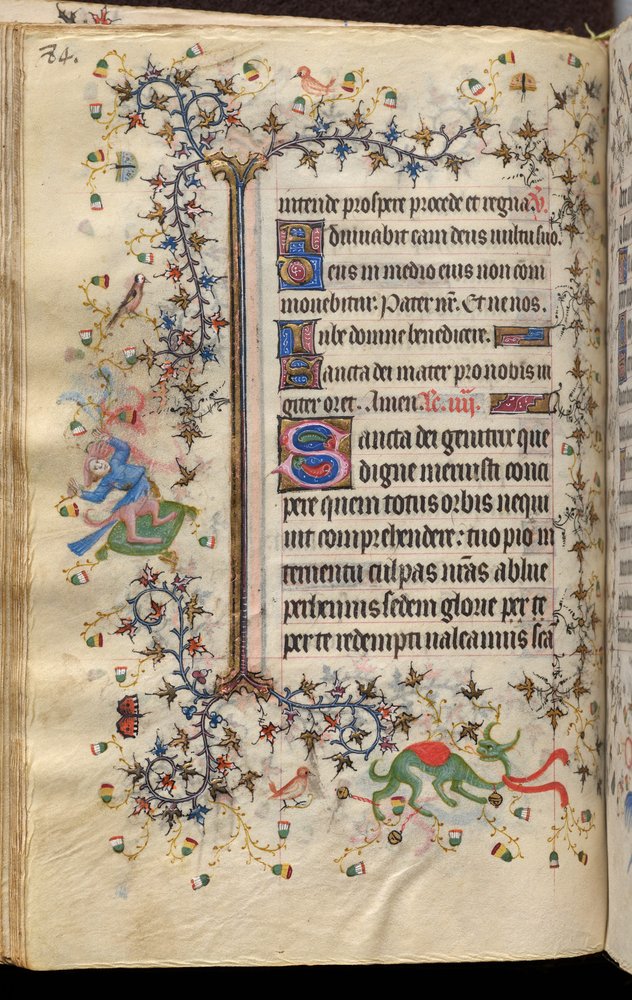 84.
intende prospere procede et regna. V.
Adiuuabit eam deus uultu suo.
Deus in medio eius non com
mouebitur. Pater nr. Et ne nos.
Iube domne benedicere.
Sancta dei mater pro nobis in
giter oret. Amen. Lc. iiij.
Sancta dei genitrix que
digne meruisti conci
pere quem totus orbis nequi
uit comprehendere: tuo pio in
teruentu culpas nras ablue
perhennis sedem glorie per te
per te redempti ualeamus scā